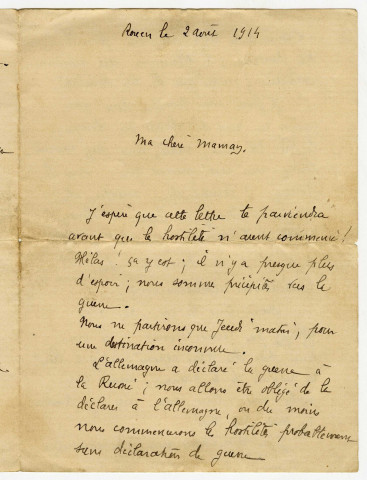 Rouen le 2 août 1914
Ma chère Maman,
J'espère que cette lettre te parviendra
avant que les hostilités n'aient commencé !
Hélas ! ça y est ; il n'y a presque plus
d'espoir ; nous somme précipités vers la
guerre.
Nous ne partirons que Jeudi matin, pour
une destination inconnue.
L'allemagne a déclaré la guerre à
la Russie ; nous allons être obligé de la
déclarer à l'allemagne, ou du moins
nous commencerons les hostilités probablement
sans déclaration de guerre